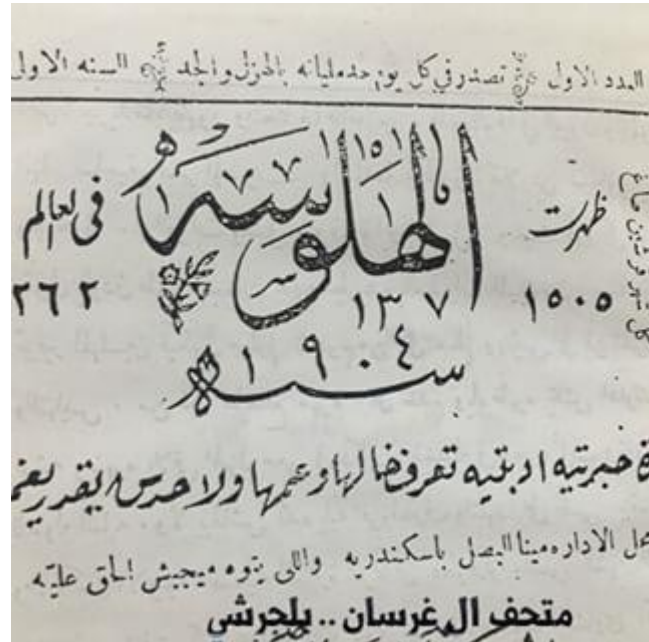 العدد الاول تصدر في كل يوم حد مليانه بالهزل والجد السنه الاولى
ظهرت الهلوسه في العالم
١٥٠٥ ١٣٠٧ ٢٦٢
سنه ١٩٠٤
خبرتيه ادبتيه تعرف خالها وعمها ولا حدش يقدر يغم
محل الاداره مينا البصل باسكندريه واللي يتوه ميجيش الحق عليه
متحف ال غرسان .. بلجرشي